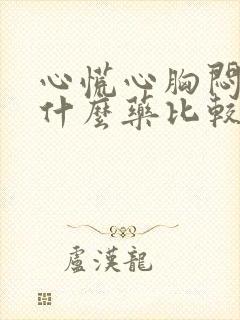 心慌心胸悶
什麼藥比較
盧漢龍